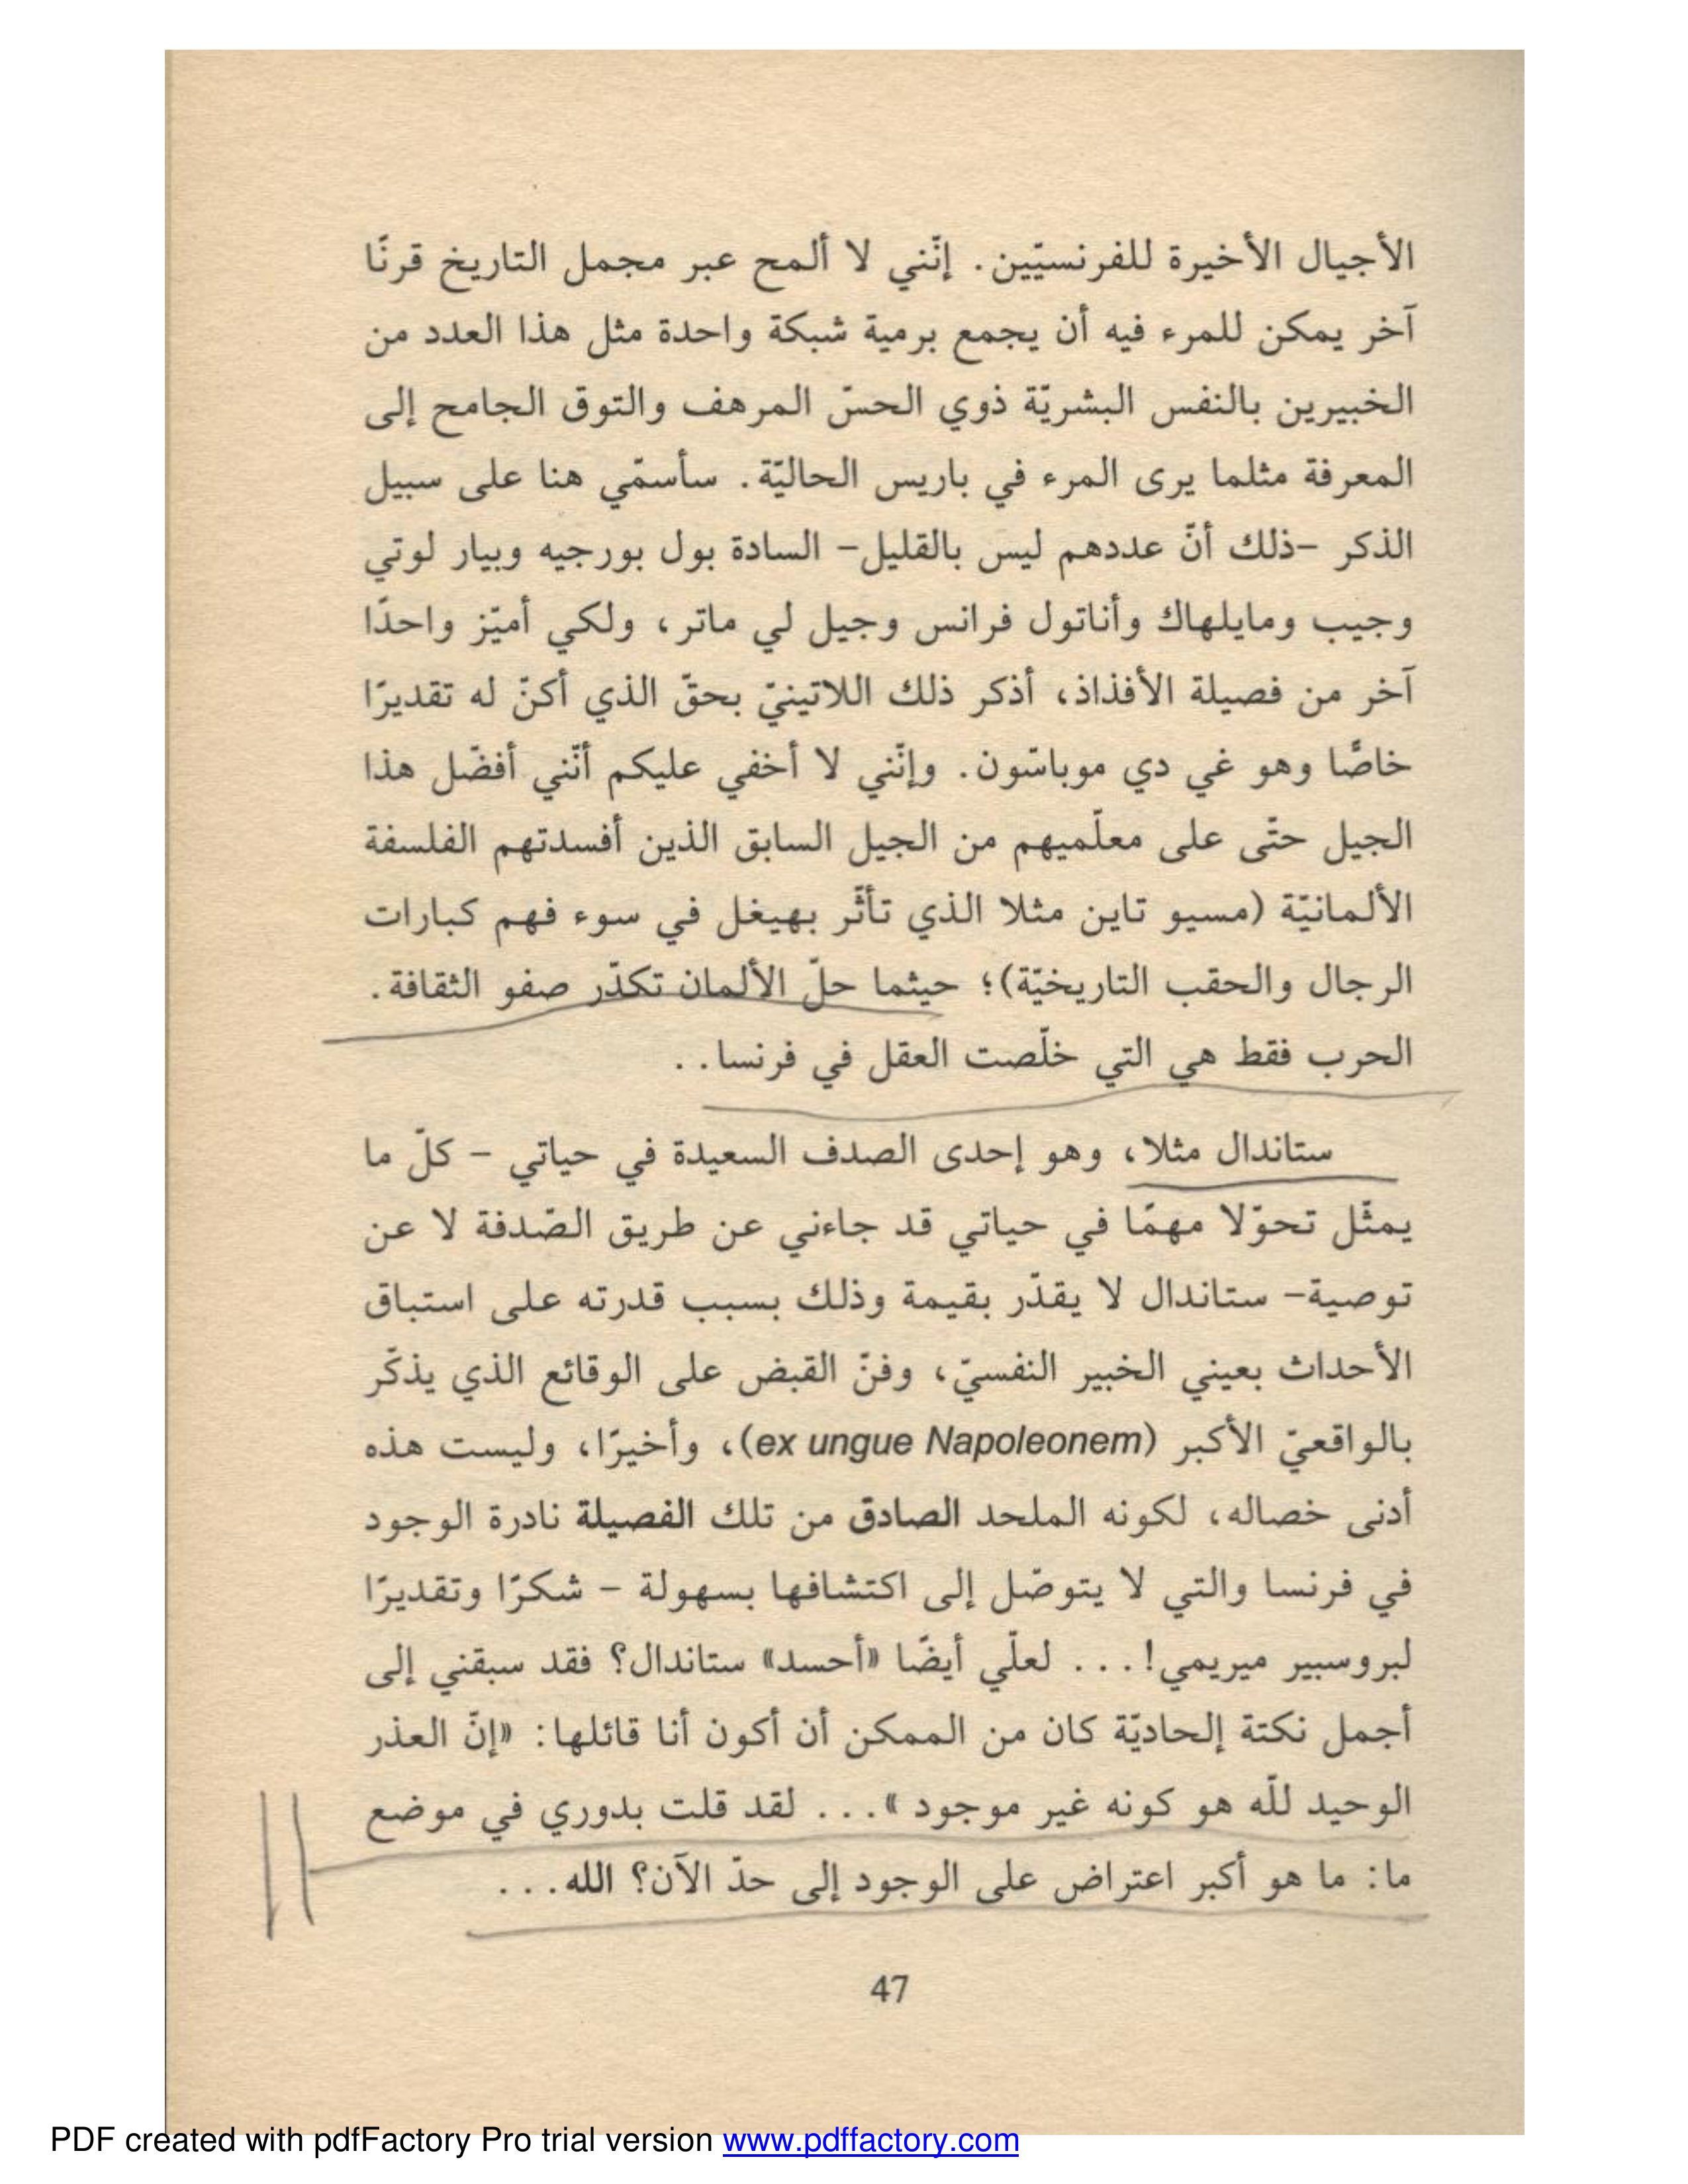 الأجيال الأخيرة للفرنسيّين. إنّني لا ألمح عبر مجمل التاريخ قرنًا
آخر يمكن للمرء فيه أن يجمع برمية شبكة واحدة مثل هذا العدد من
الخبيرين بالنفس البشريّة ذوي الحسّ المرهف والتوق الجامح إلى
المعرفة مثلما يرى المرء في باريس الحاليّة. سأسمّي هنا على سبيل
الذكر –ذلك أنّ عددهم ليس بالقليل– السادة بول بورجيه وبيار لوتي
وجيب ومايلهاك وأناتول فرانس وجيل لي ماتر، ولكي أميّز واحدًا
آخر من فصيلة الأفذاذ، أذكر ذلك اللاتينيّ بحقّ الذي أكنّ له تقديرًا
خاصًّا وهو غي دي موباسّون. وإنّني لا أخفي عليكم أنّني أفضّل هذا
الجيل حتّى على معلّميهم من الجيل السابق الذين أفسدتهم الفلسفة
الألمانيّة (مسيو تاين مثلا الذي تأثّر بهيغل في سوء فهم كبارات
الرجال والحقب التاريخيّة)؛ حيثما حلّ الألمان تكدّر صفو الثقافة.
الحرب فقط هي التي خلّصت العقل في فرنسا..
ستاندال مثلا، وهو إحدى الصدف السعيدة في حياتي – كلّ ما
يمثّل تحوّلا مهمّا في حياتي قد جاءني عن طريق الصّدفة لا عن
توصية– ستاندال لا يقدّر بقيمة وذلك بسبب قدرته على استباق
الأحداث بعيني الخبير النفسيّ، وفنّ القبض على الوقائع الذي يذكّر
بالواقعيّ الأكبر (ex ungue Napoleonem)، وأخيرًا، وليست هذه
أدنى خصاله، لكونه الملحد الصادق من تلك الفصيلة نادرة الوجود
في فرنسا والتي لا يتوصّل إلى اكتشافها بسهولة – شكرًا وتقديرًا
لبروسبير ميريمي!... لعلّي أيضًا «أحسد» ستاندال؟ فقد سبقني إلى
أجمل نكتة إلحاديّة كان من الممكن أن أكون أنا قائلها: «إنّ العذر
الوحيد للّه هو كونه غير موجود »... لقد قلت بدوري في موضع
ما: ما هو أكبر اعتراض على الوجود إلى حدّ الآن؟ الله...
47
PDF created with pdfFactory Pro trial version www.pdffactory.com